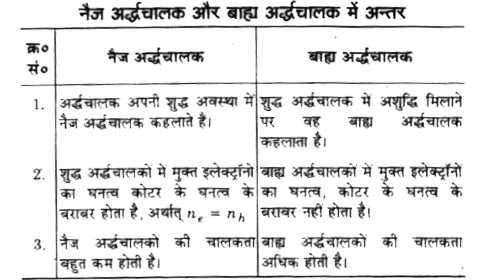 नैज अर्द्धचालक और बाह्य अर्द्धचालक में अन्तर
क्र०
सं०
नैज अर्द्धचालक
बाह्य अर्द्धचालक
1.
अर्द्धचालक अपनी शुद्ध अवस्था में
नैज अर्द्धचालक कहलाते है।
शुद्ध अर्द्धचालक में अशुद्धि मिलाने
पर वह बाह्य अर्द्धचालक
कहलाता है।
2.
शुद्ध अर्द्धचालकों में मुक्त इलेक्ट्रॉनों
का घनत्व कोटर के घनत्व के
बराबर होता है, अर्थात् nₑ = nₕ
बाह्य अर्द्धचालकों में मुक्त इलेक्ट्रॉनों
का घनत्व, कोटर के घनत्व के
बराबर नहीं होता है।
3.
नैज अर्द्धचालकों की चालकता
बहुत कम होती है।
बाह्य अर्द्धचालकों की चालकता
अधिक होती है।